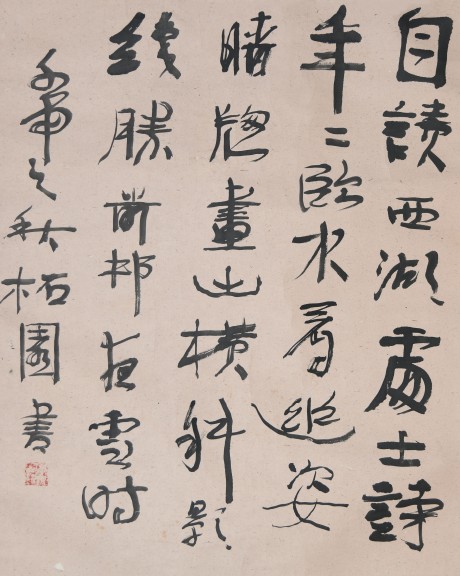 自讀西湖處士詩
年二臨水看幽姿
晴窗畫出横斜影
絶勝前邨夜雪时
之秋柘園書